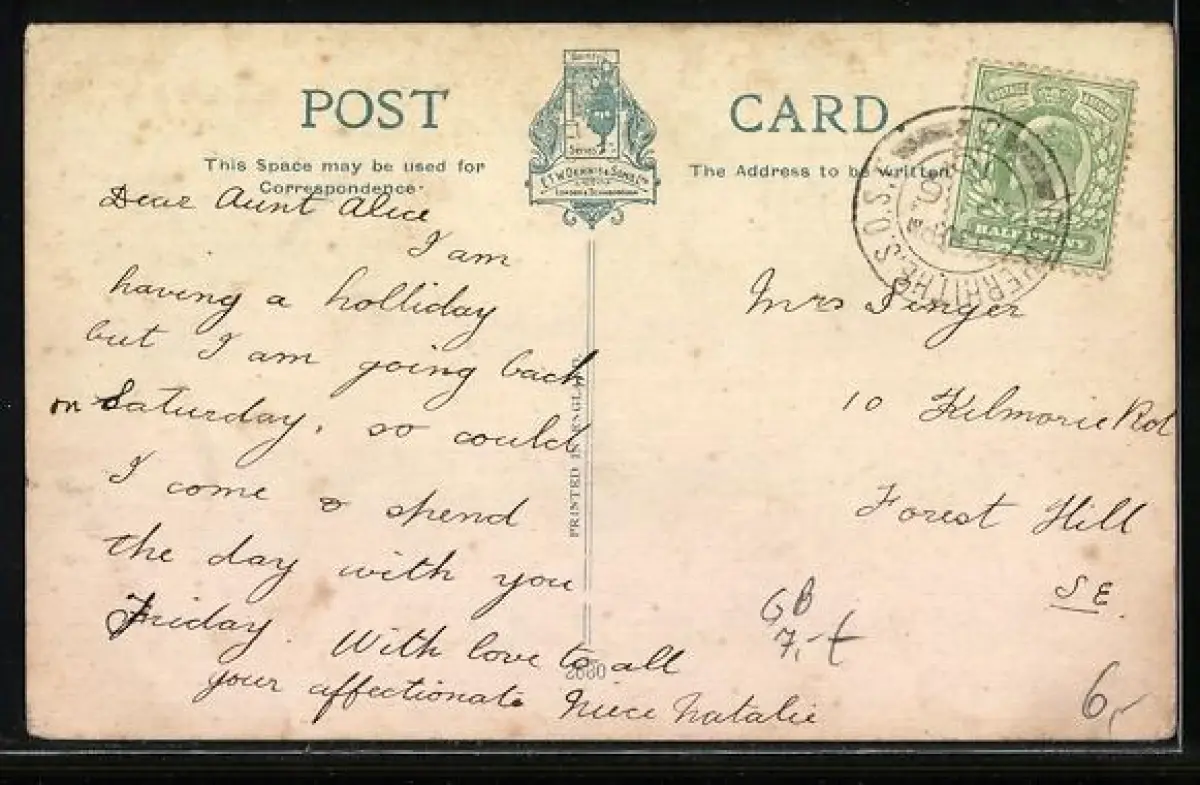 POST CARD
This Space may be used for
Correspondence.
The Address to be written
Series
E.T.W. DENNIS & SONS, Ltd
LONDON & SCARBOROUGH
HALFPENNY
S.O.S.
Dear Aunt Alice
I am
having a holliday
but I am going back
on Saturday, so could
I come & spend
the day with you
Friday. With love to all
your affectionate Niece Natalie
PRINTED IN ENGLAND
Mrs Singer
10 Kilmorie Rd
Forest Hill
S E.
GB
7,-
6,-